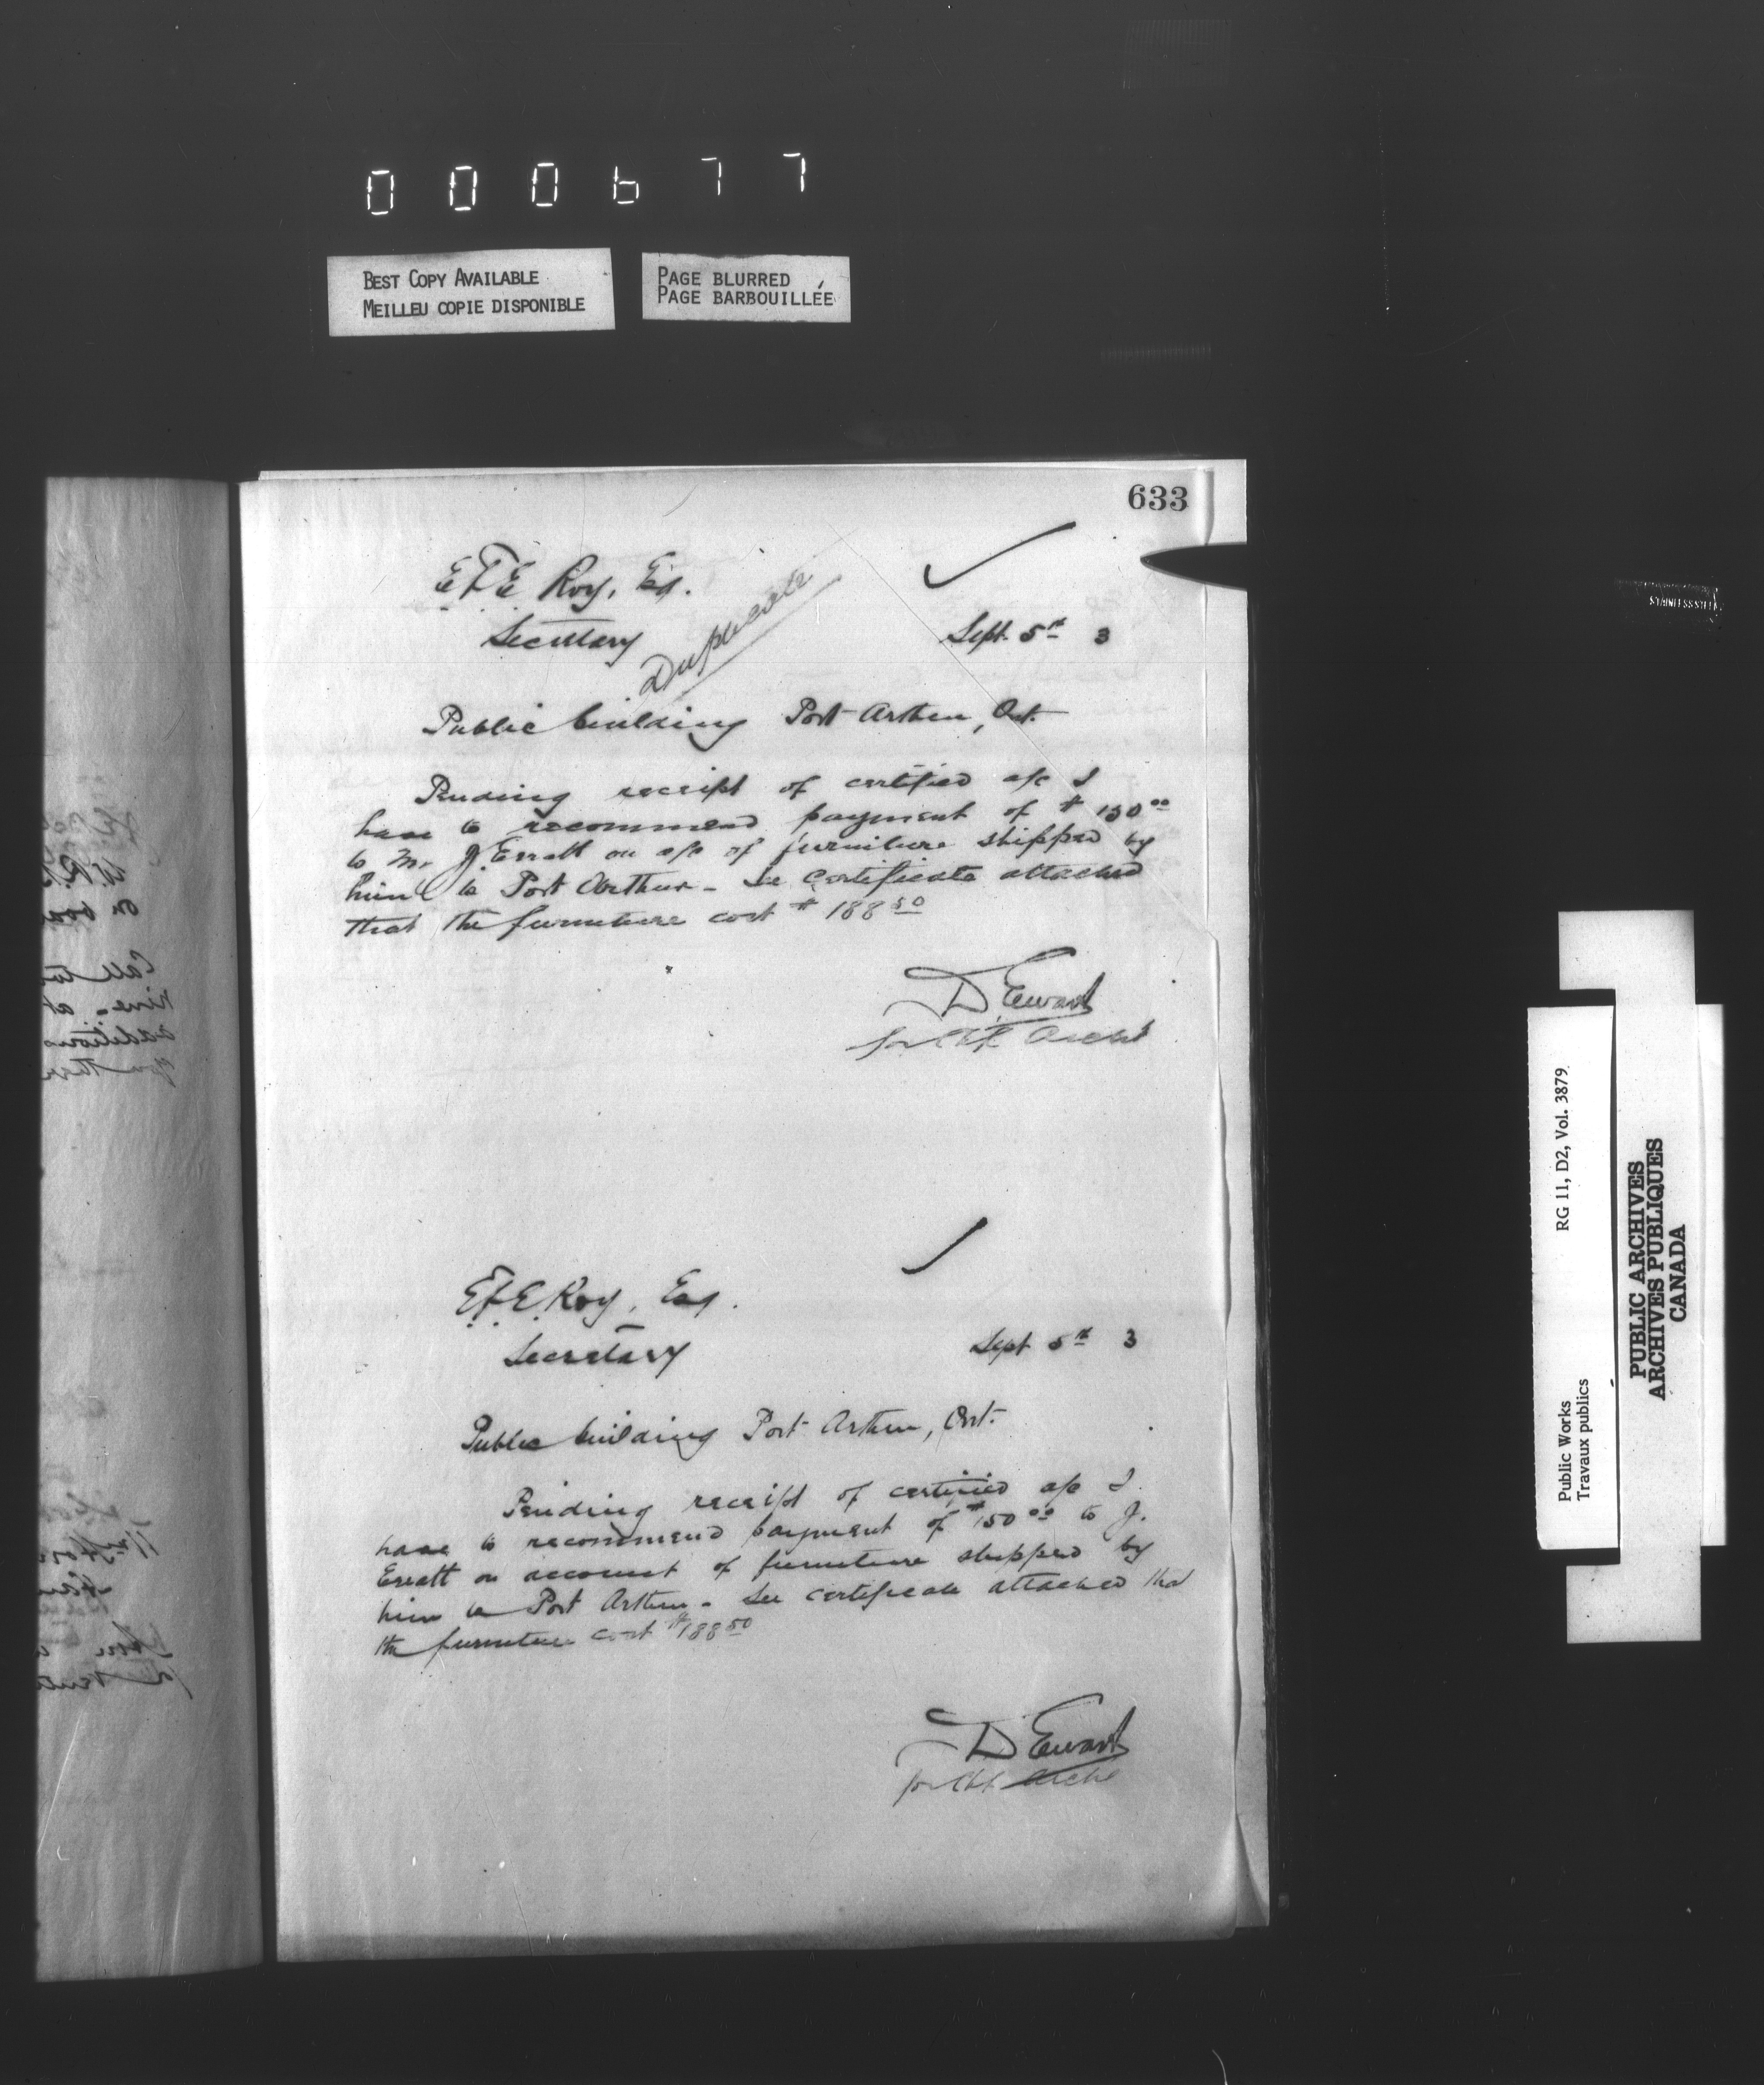 000677
BEST COPY AVAILABLE
MEILLEU COPIE DISPONIBLE
PAGE BLURRED
PAGE BARBOUILLÉE
633
E.F.E. Roy, Esq.
Secretary
Duplicate
Sept. 5th 3
Public building Port Arthur, Ont.
Pending receipt of certified a/c I
have to recommend payment of $150.00
to Mr J Erratt on a/c of furniture shipped by
him to Port Arthur - See certificate attached
that the furniture cost $188.50
D Ewart
for Chf Archt
E.F.E. Roy, Esq.
Secretary
Sept 5th 3
Public building Port Arthur, Ont.
Pending receipt of certified a/c I
have to recommend payment of $150.00 to J.
Erratt on account of furniture shipped by
him to Port Arthur - See certificate attached that
the furniture cost $188.50
D Ewart
for Chf Archt
STAINLESS STEEL
RG 11, D2, Vol. 3879
Public Works
Travaux publics
PUBLIC ARCHIVES
ARCHIVES PUBLIQUES
CANADA